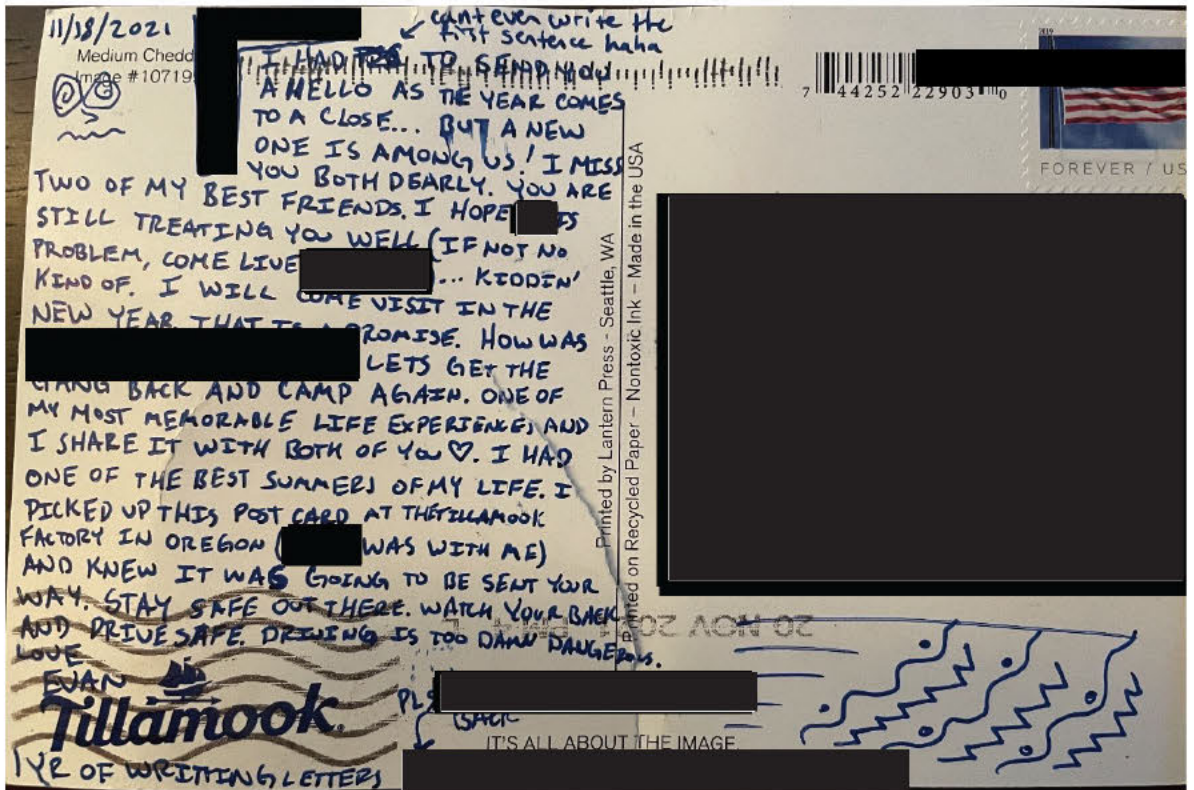 11/18/2021
can't even write the
first sentence haha
Medium Chedd
Image #10719
I HAD TO SEND YOU
A HELLO AS THE YEAR COMES
TO A CLOSE... BUT A NEW
ONE IS AMONG US! I MISS
YOU BOTH DEARLY. YOU ARE
TWO OF MY BEST FRIENDS. I HOPE IS
STILL TREATING YOU WELL (IF NOT NO
PROBLEM, COME LIVE )... KIDDIN'
KIND OF. I WILL COME VISIT IN THE
NEW YEAR. THAT IS A PROMISE. HOW WAS
LETS GET THE
GANG BACK AND CAMP AGAIN. ONE OF
MY MOST MEMORABLE LIFE EXPERIENCES AND
I SHARE IT WITH BOTH OF YOU ♡. I HAD
ONE OF THE BEST SUMMERS OF MY LIFE. I
PICKED UP THIS POST CARD AT THE TILLAMOOK
FACTORY IN OREGON ( WAS WITH ME)
AND KNEW IT WAS GOING TO BE SENT YOUR
WAY. STAY SAFE OUT THERE. WATCH YOUR BACK
AND DRIVE SAFE. DRIVING IS TOO DAMN DANGEROUS.
LOVE
EVAN
Tillamook
PLS
BACK
IT'S ALL ABOUT THE IMAGE.
1 YR OF WRITING LETTERS
Printed by Lantern Press - Seattle, WA
Printed on Recycled Paper – Nontoxic Ink – Made in the USA
7 44252 22903 0
2019
FOREVER / US
20 NOV 2021 PM